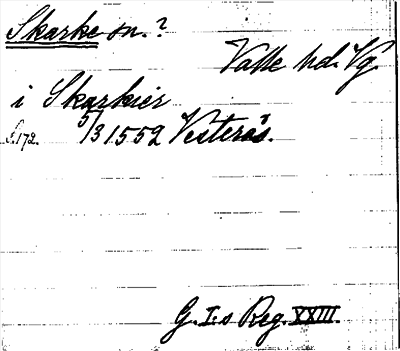 Skarke sn.?
Valle hd. Vg.
i Skarkier
S. 172. 5/3 1552 Vesterås.
G. I:s Reg. XXIII.